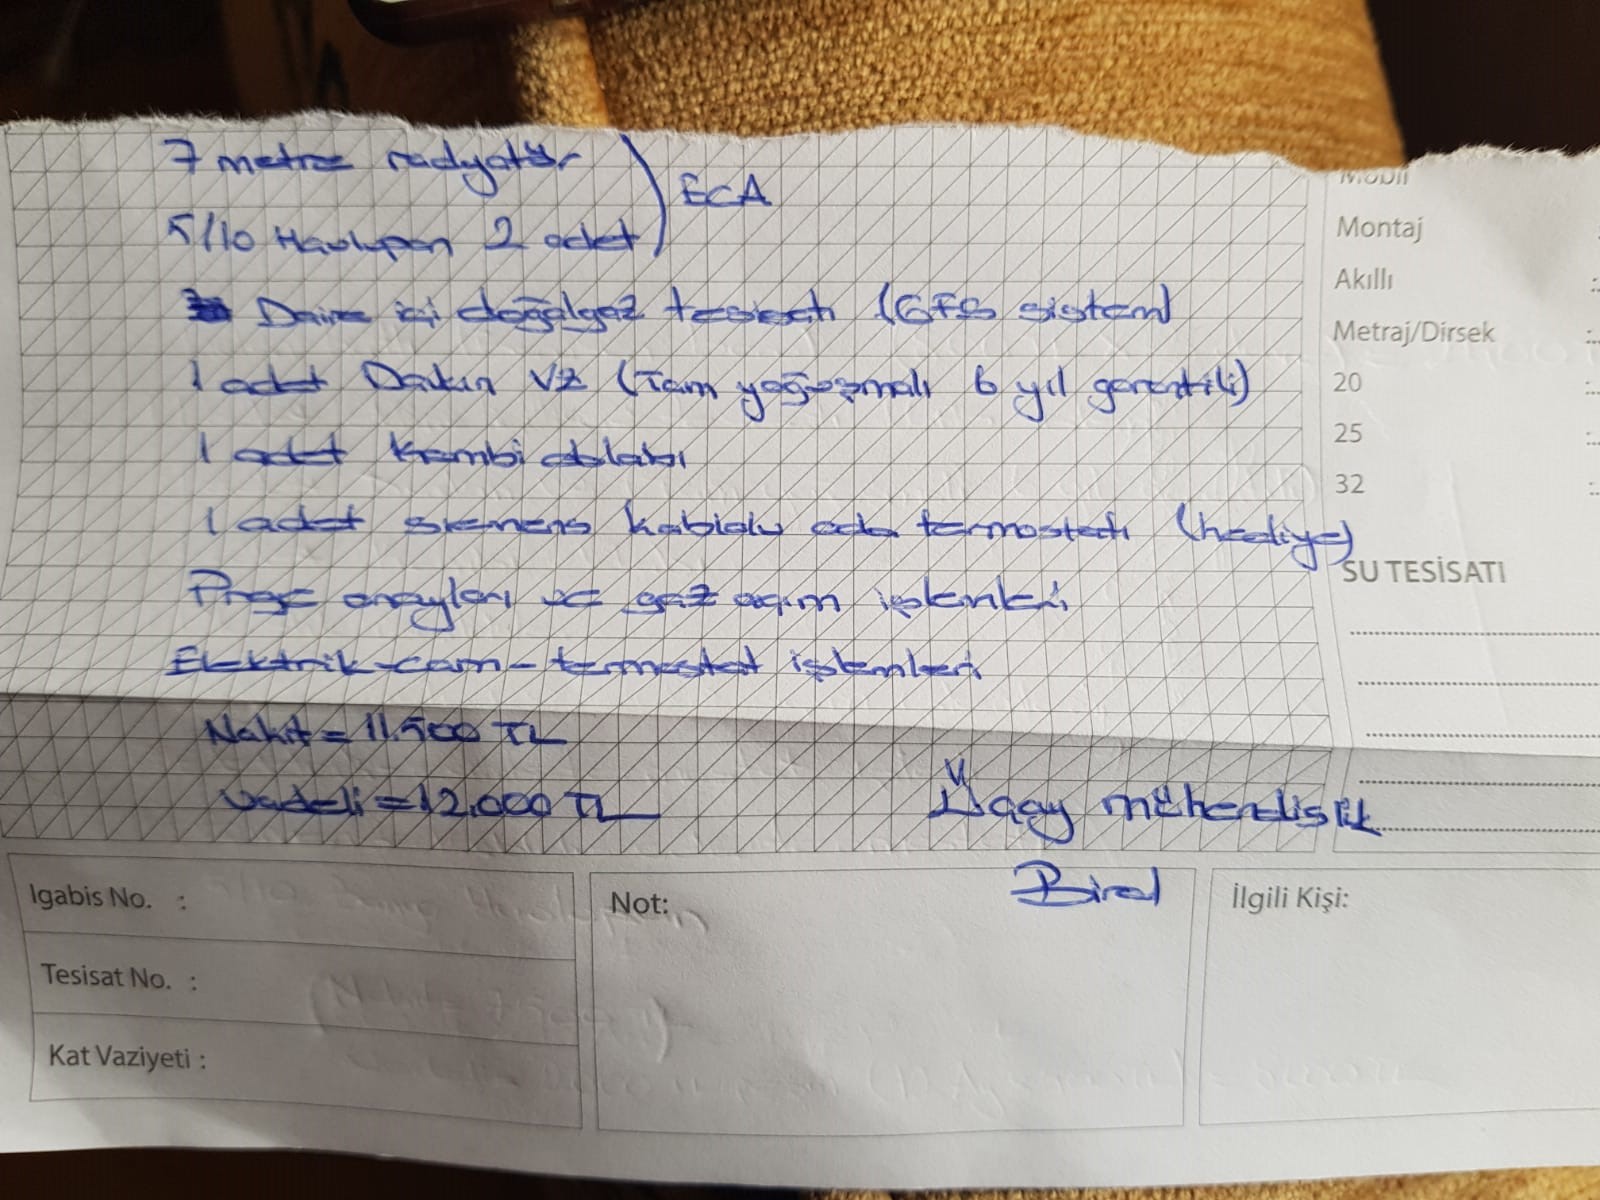 7 metre radyatör
ECA
5/10 Havlupan 2 adet
Daire içi doğalgaz tesisatı (GFS sistem)
1 adet Daikin VZ (Tam yoğuşmalı 6 yıl garantili)
1 adet kombi dolabı
1 adet siemens kablolu oda termostatı (hediye)
Proje onayları ve gaz açım işlemleri
Elektrik-cam-termostat işlemleri
Nakit = 11.500 TL
Vadeli = 12.000 TL
Üçay mühendislik
Birol
Mobil
Montaj :
Akıllı :
Metraj/Dirsek :
20 :
25 :
32 :
SU TESİSATI
Igabis No. :
Tesisat No. :
Kat Vaziyeti :
Not:
İlgili Kişi: